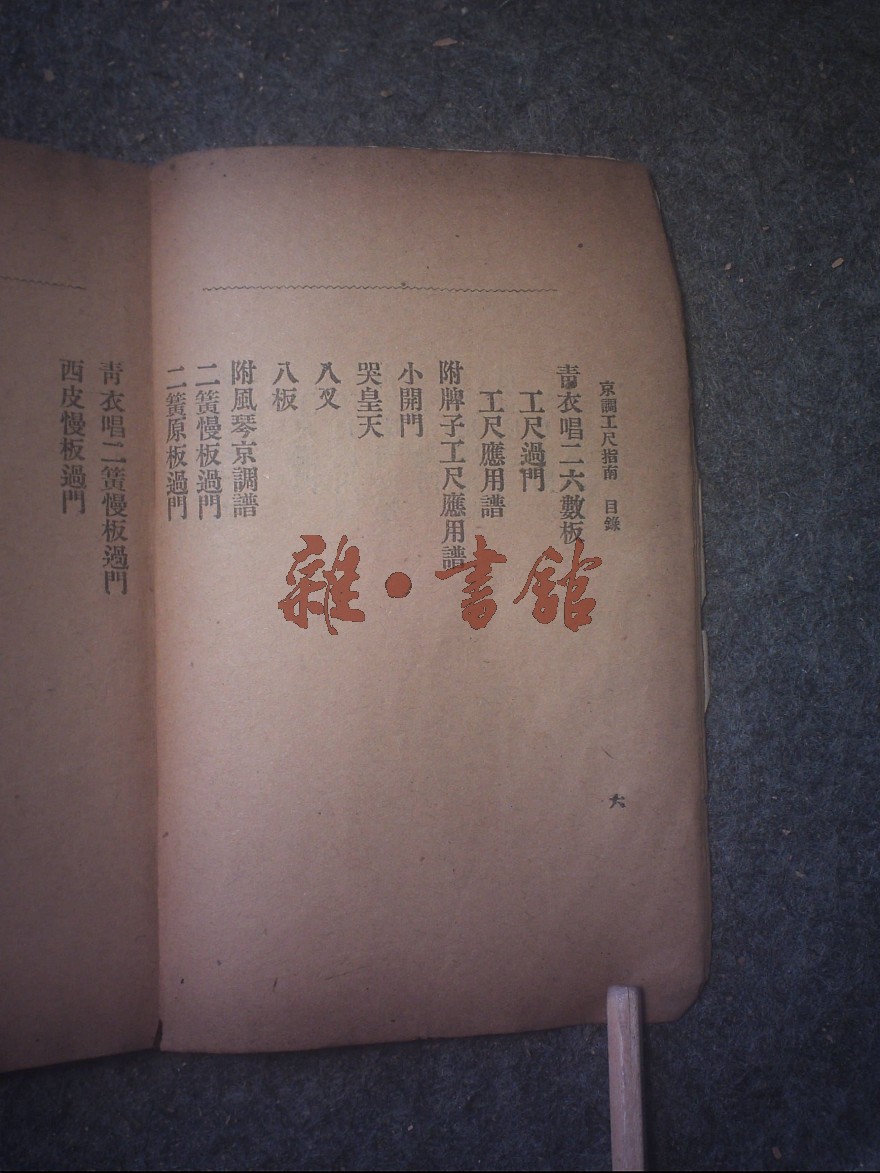 京調工尺指南　目錄
青衣唱二六數板
工尺過門
工尺應用譜
附牌子工尺應用譜
小開門
哭皇天
八叉
八板
附風琴京調譜
二簧慢板過門
二簧原板過門
六
青衣唱二簧慢板過門
西皮慢板過門
雜·書館